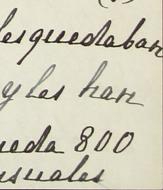 les quedaban
y les han
ueda 800
nsuales